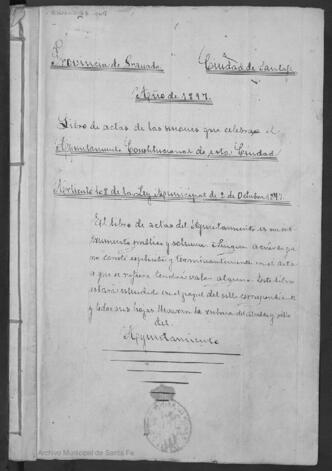 Provincia de Granada
Ciudad de Santafé
Año de 1897.
Libro de actas de las sesiones que celebra el
Ayuntamiento Constitucional de esta Ciudad
de la Ley Municipal de 2 de Octubre 1877.
El libro de actas del Ayuntamiento es un ins-
trumento público y solemne. Ningun acuerdo que
no conste explicita y terminantemente en el acta
a que se refiera tendrá valor alguno. Este libro
estará estendido en el papel del sello correspondiente
y todas sus hojas llevarán la rúbrica del Alcalde y sello
del
Ayuntamiento
Archivo Municipal de Santa Fe